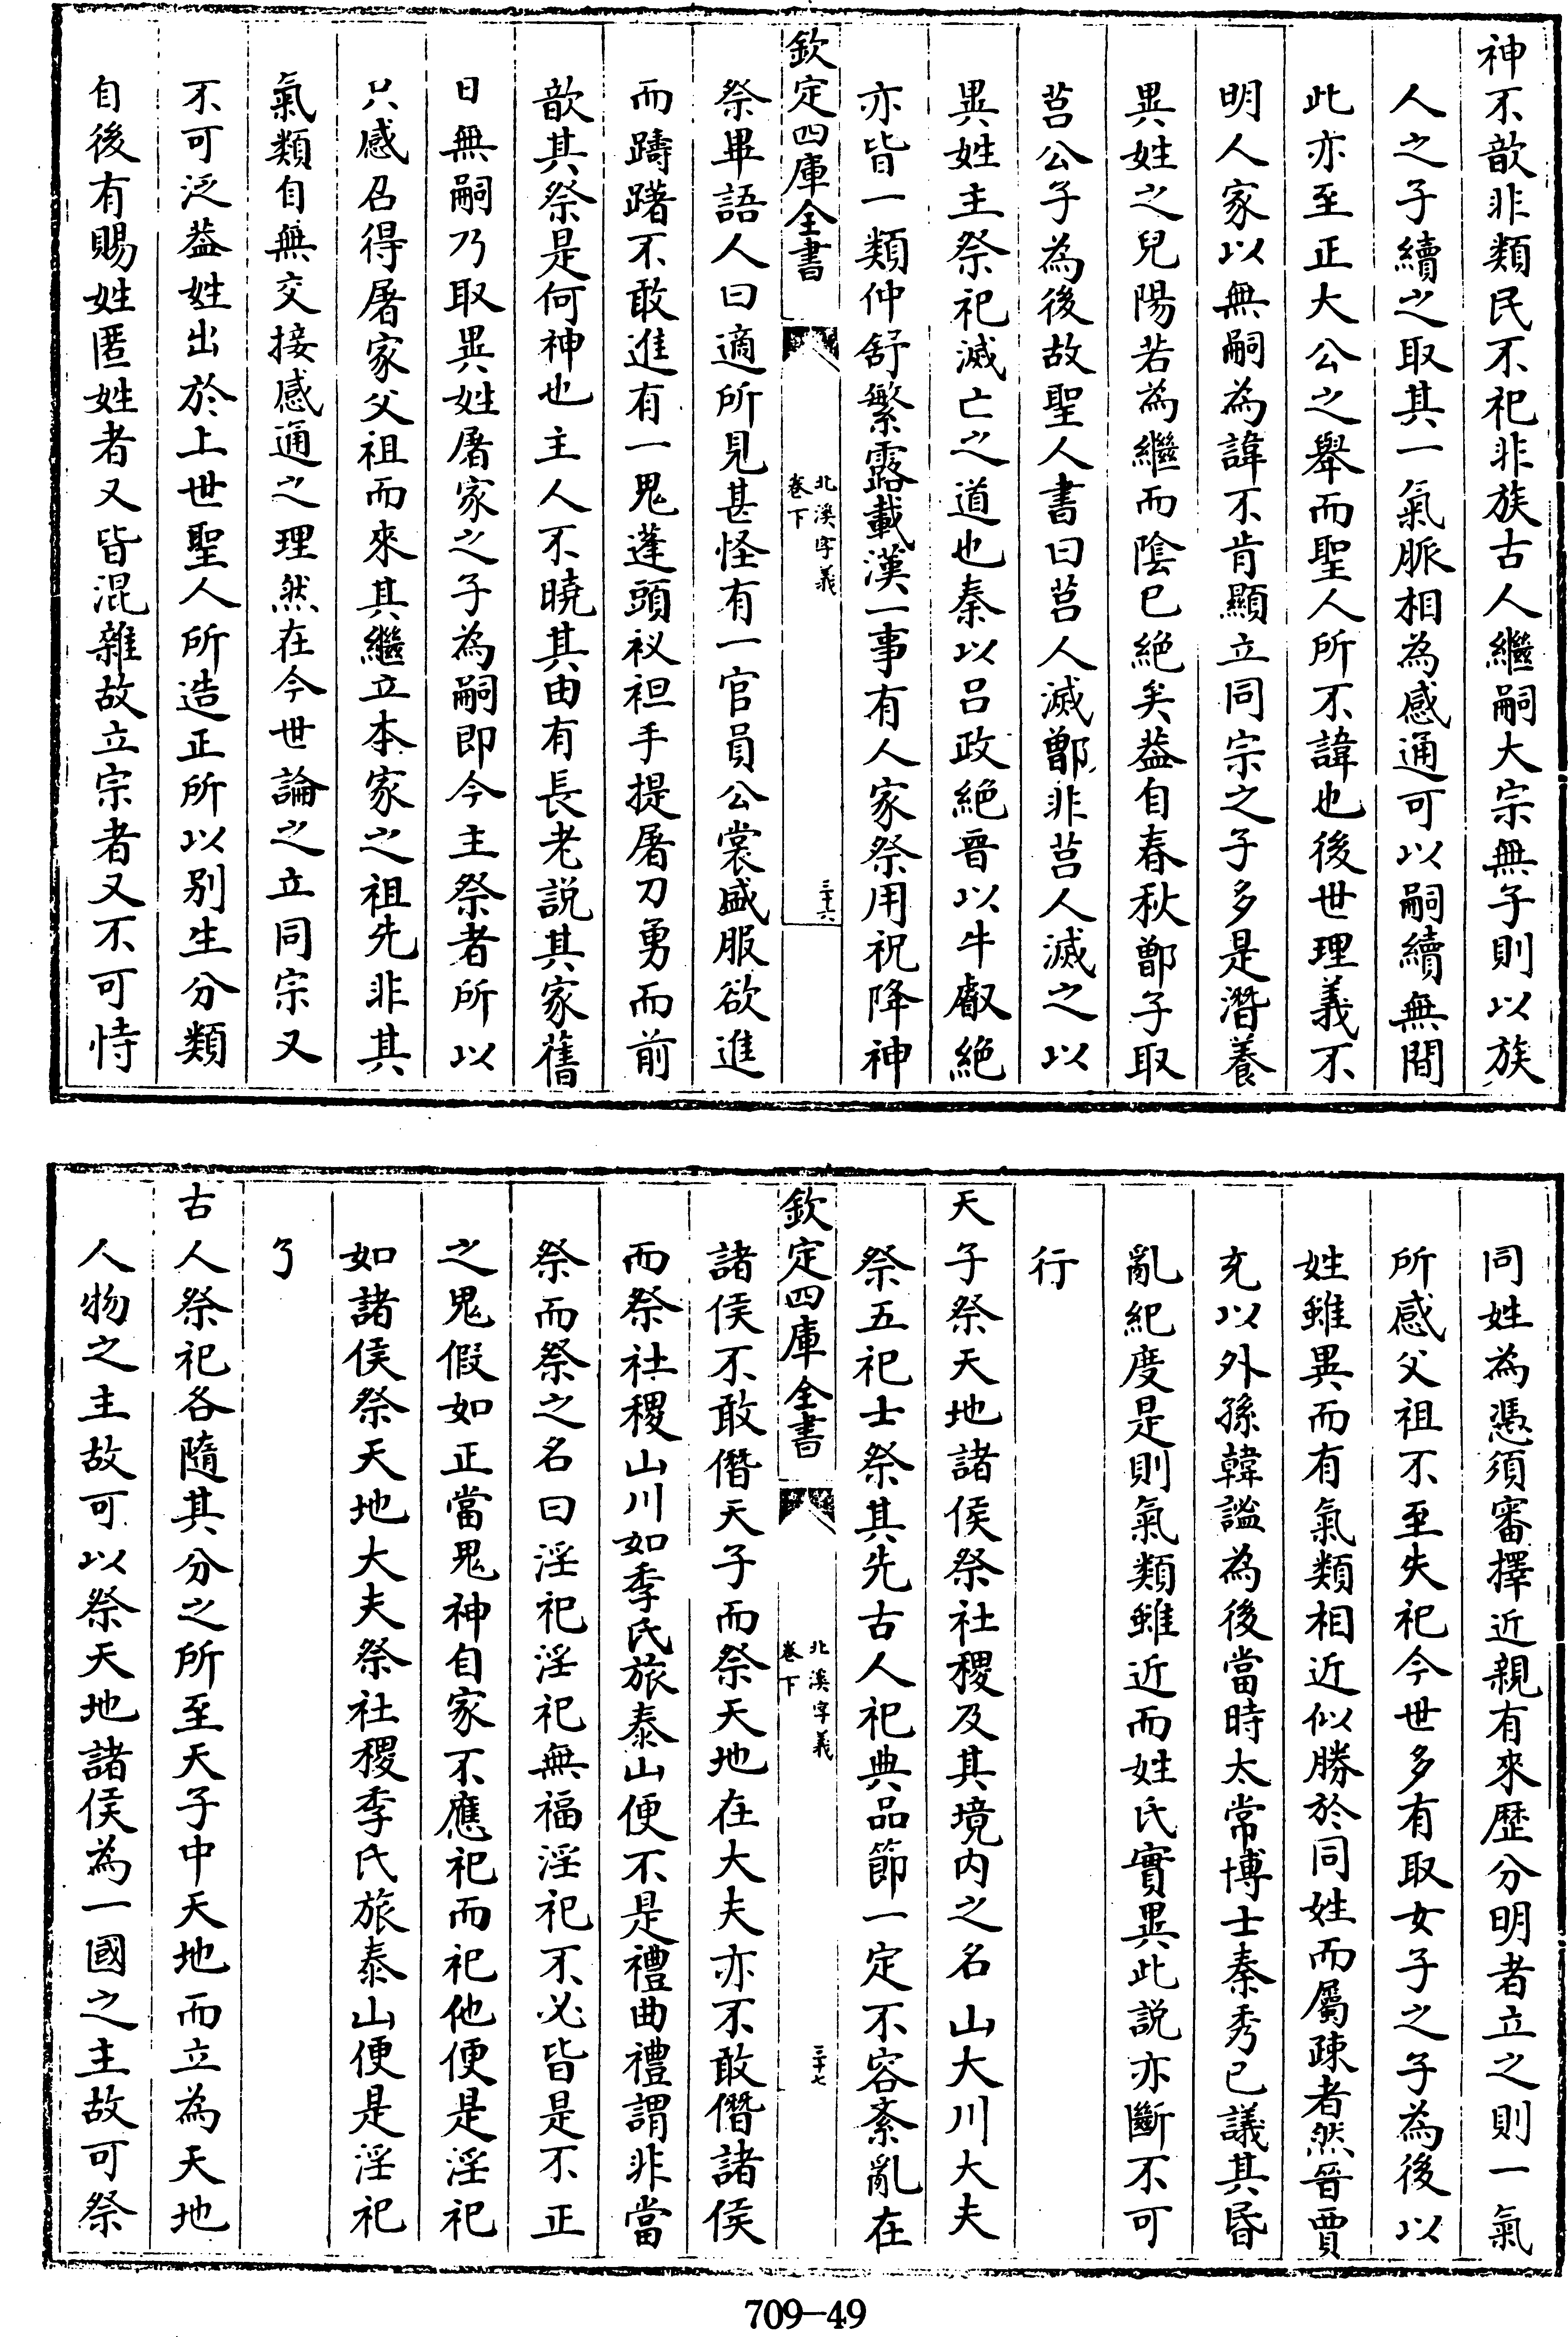 神不歆非類民不祀非族古人繼嗣大宗無子則以族
人之子續之取其一氣脈相為感通可以嗣續無間
此亦至正大公之舉而聖人所不諱也後世理義不
明人家以無嗣為諱不肯顯立同宗之子多是潛養
異姓之兒陽若為繼而陰已絶矣葢自春秋鄫子取
莒公子為後故聖人書曰莒人滅鄫非莒人滅之以
異姓主祭祀滅亡之道也秦以吕政絶晉以牛叡絶
亦皆一類仲舒繁露載漢一事有人家祭用祝降神
欽定四庫全書
北溪字義
卷下
三十六
祭畢語人曰適所見甚怪有一官員公裳盛服欲進
而躊躇不敢進有一鬼蓬頭衩袒手提屠刀勇而前
歆其祭是何神也主人不曉其由有長老説其家舊
日無嗣乃取異姓屠家之子為嗣即今主祭者所以
只感召得屠家父祖而來其繼立本家之祖先非其
氣類自無交接感通之理然在今世論之立同宗又
不可泛葢姓出於上世聖人所造正所以别生分類
自後有賜姓匿姓者又皆混雜故立宗者又不可恃
同姓為憑須審擇近親有來歴分明者立之則一氣
所感父祖不至失祀今世多有取女子之子為後以
姓雖異而有氣類相近似勝於同姓而屬疎者然晉賈
充以外孫韓謐為後當時太常博士秦秀已議其昏
亂紀度是則氣類雖近而姓氏實異此説亦斷不可
行
天子祭天地諸侯祭社稷及其境内之名山大川大夫
祭五祀士祭其先古人祀典品節一定不容紊亂在
欽定四庫全書
北溪字義
卷下
三十七
諸侯不敢僭天子而祭天地在大夫亦不敢僭諸侯
而祭社稷山川如季氏旅泰山便不是禮曲禮謂非當
祭而祭之名曰淫祀淫祀無福淫祀不必皆是不正
之鬼假如正當鬼神自家不應祀而祀他便是淫祀
如諸侯祭天地大夫祭社稷季氏旅泰山便是淫祀
了
古人祭祀各隨其分之所至天子中天地而立為天地
人物之主故可以祭天地諸侯為一國之主故可祭
709-49